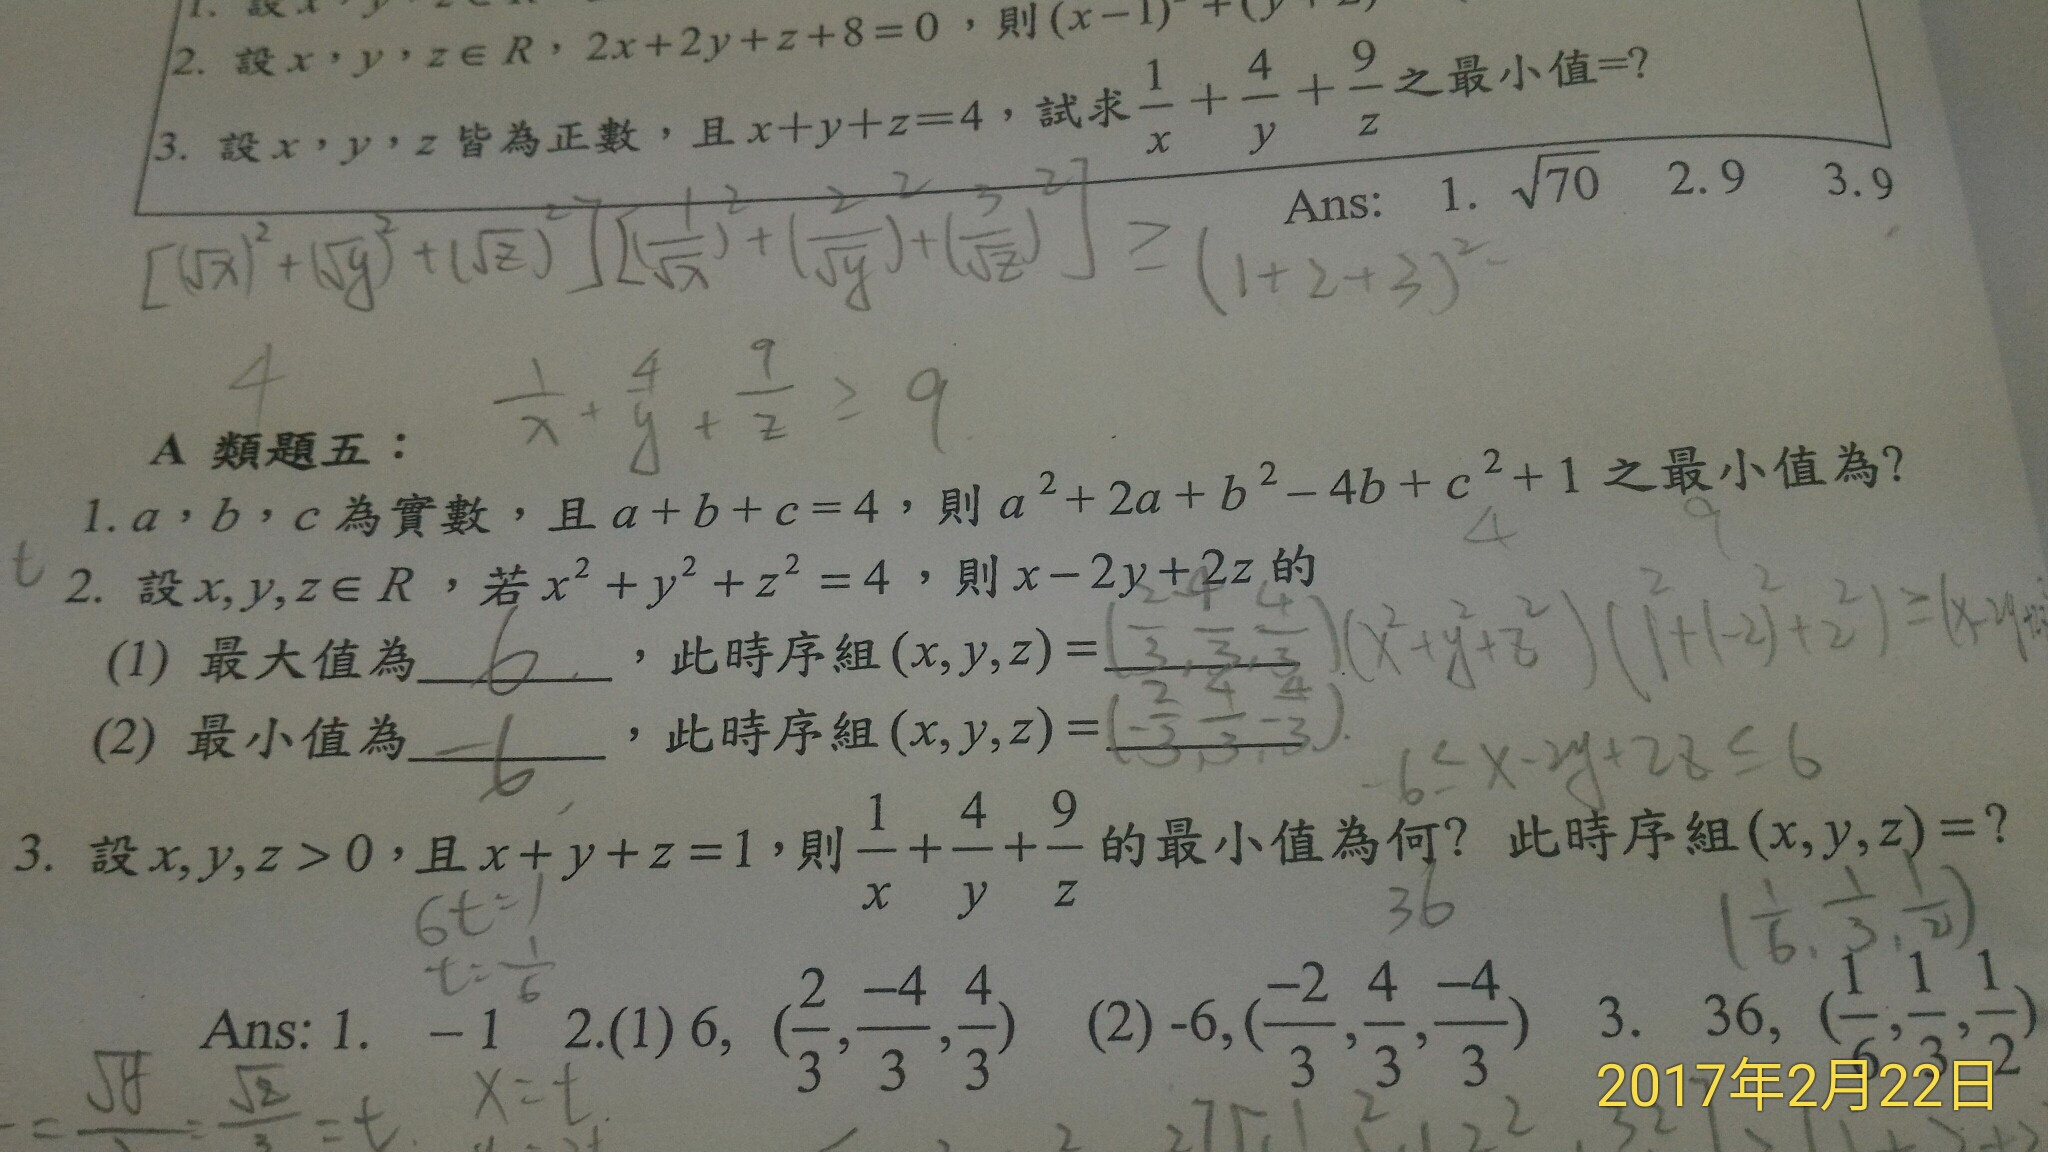 2. 設 x，y，z∈R，2x+2y+z+8=0，則(x−1)
3. 設 x，y，z 皆為正數，且 x+y+z=4，試求 1/x + 4/y + 9/z 之最小值=?
Ans: 1. √70 2. 9 3. 9
[(√x)²+(√y)²+(√z)²][(1/√x)²+(2/√y)²+(3/√z)²] ≥ (1+2+3)²
4 1/x + 4/y + 9/z ≥ 9
A 類題五：
1. a，b，c 為實數，且 a+b+c=4，則 a²+2a+b²−4b+c²+1 之最小值為?
4 9
t
2. 設 x,y,z∈R，若 x²+y²+z²=4，則 x−2y+2z 的
(1) 最大值為 6，此時序組(x,y,z)=(2/3, -4/3, 4/3) (x²+y²+z²)(1²+(-2)²+2²) ≥ (x-2y+2z
(2) 最小值為 -6，此時序組(x,y,z)=(-2/3, 4/3, -4/3)
-6 ≤ x-2y+2z ≤ 6
3. 設 x,y,z>0，且 x+y+z=1，則 1/x + 4/y + 9/z 的最小值為何? 此時序組(x,y,z)=?
6t=1 36 (1/6, 1/3, 1/2)
t=1/6
Ans: 1. −1 2.(1) 6, (2/3, −4/3, 4/3) (2) -6, (−2/3, 4/3, −4/3) 3. 36, (1/6, 1/3, 1/2)
2017年2月22日
x=t
=t